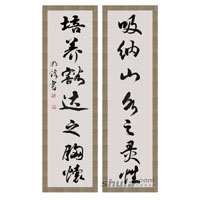 吸纳山水之灵性
培养豁达之胸怀